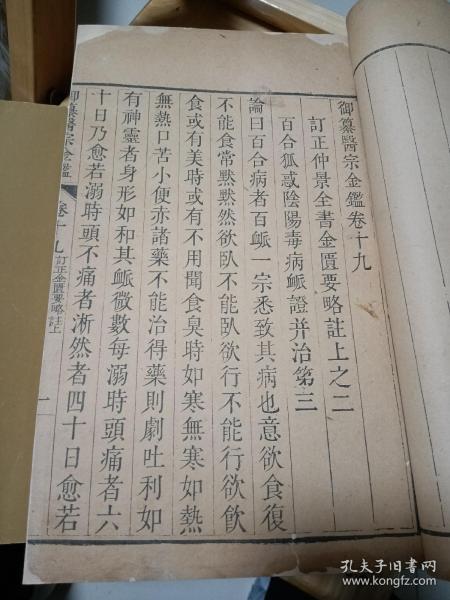 御纂醫宗金鑑卷十九
訂正仲景全書金匱要略註上之二
百合狐惑陰陽毒病脈證并治第三
論曰百合病者百脈一宗悉致其病也意欲食復
不能食常默默然欲臥不能臥欲行不能行欲飲
食或有美時或有不用聞食臭時如寒無寒如熱
無熱口苦小便赤諸藥不能治得藥則劇吐利如
有神靈者身形如和其脈微數每溺時頭痛者六
十日乃愈若溺時頭不痛者淅然者四十日愈若
御纂醫宗金鑑 卷十九 訂正金匱要略註上 一
孔夫子旧书网
www.kongfz.com